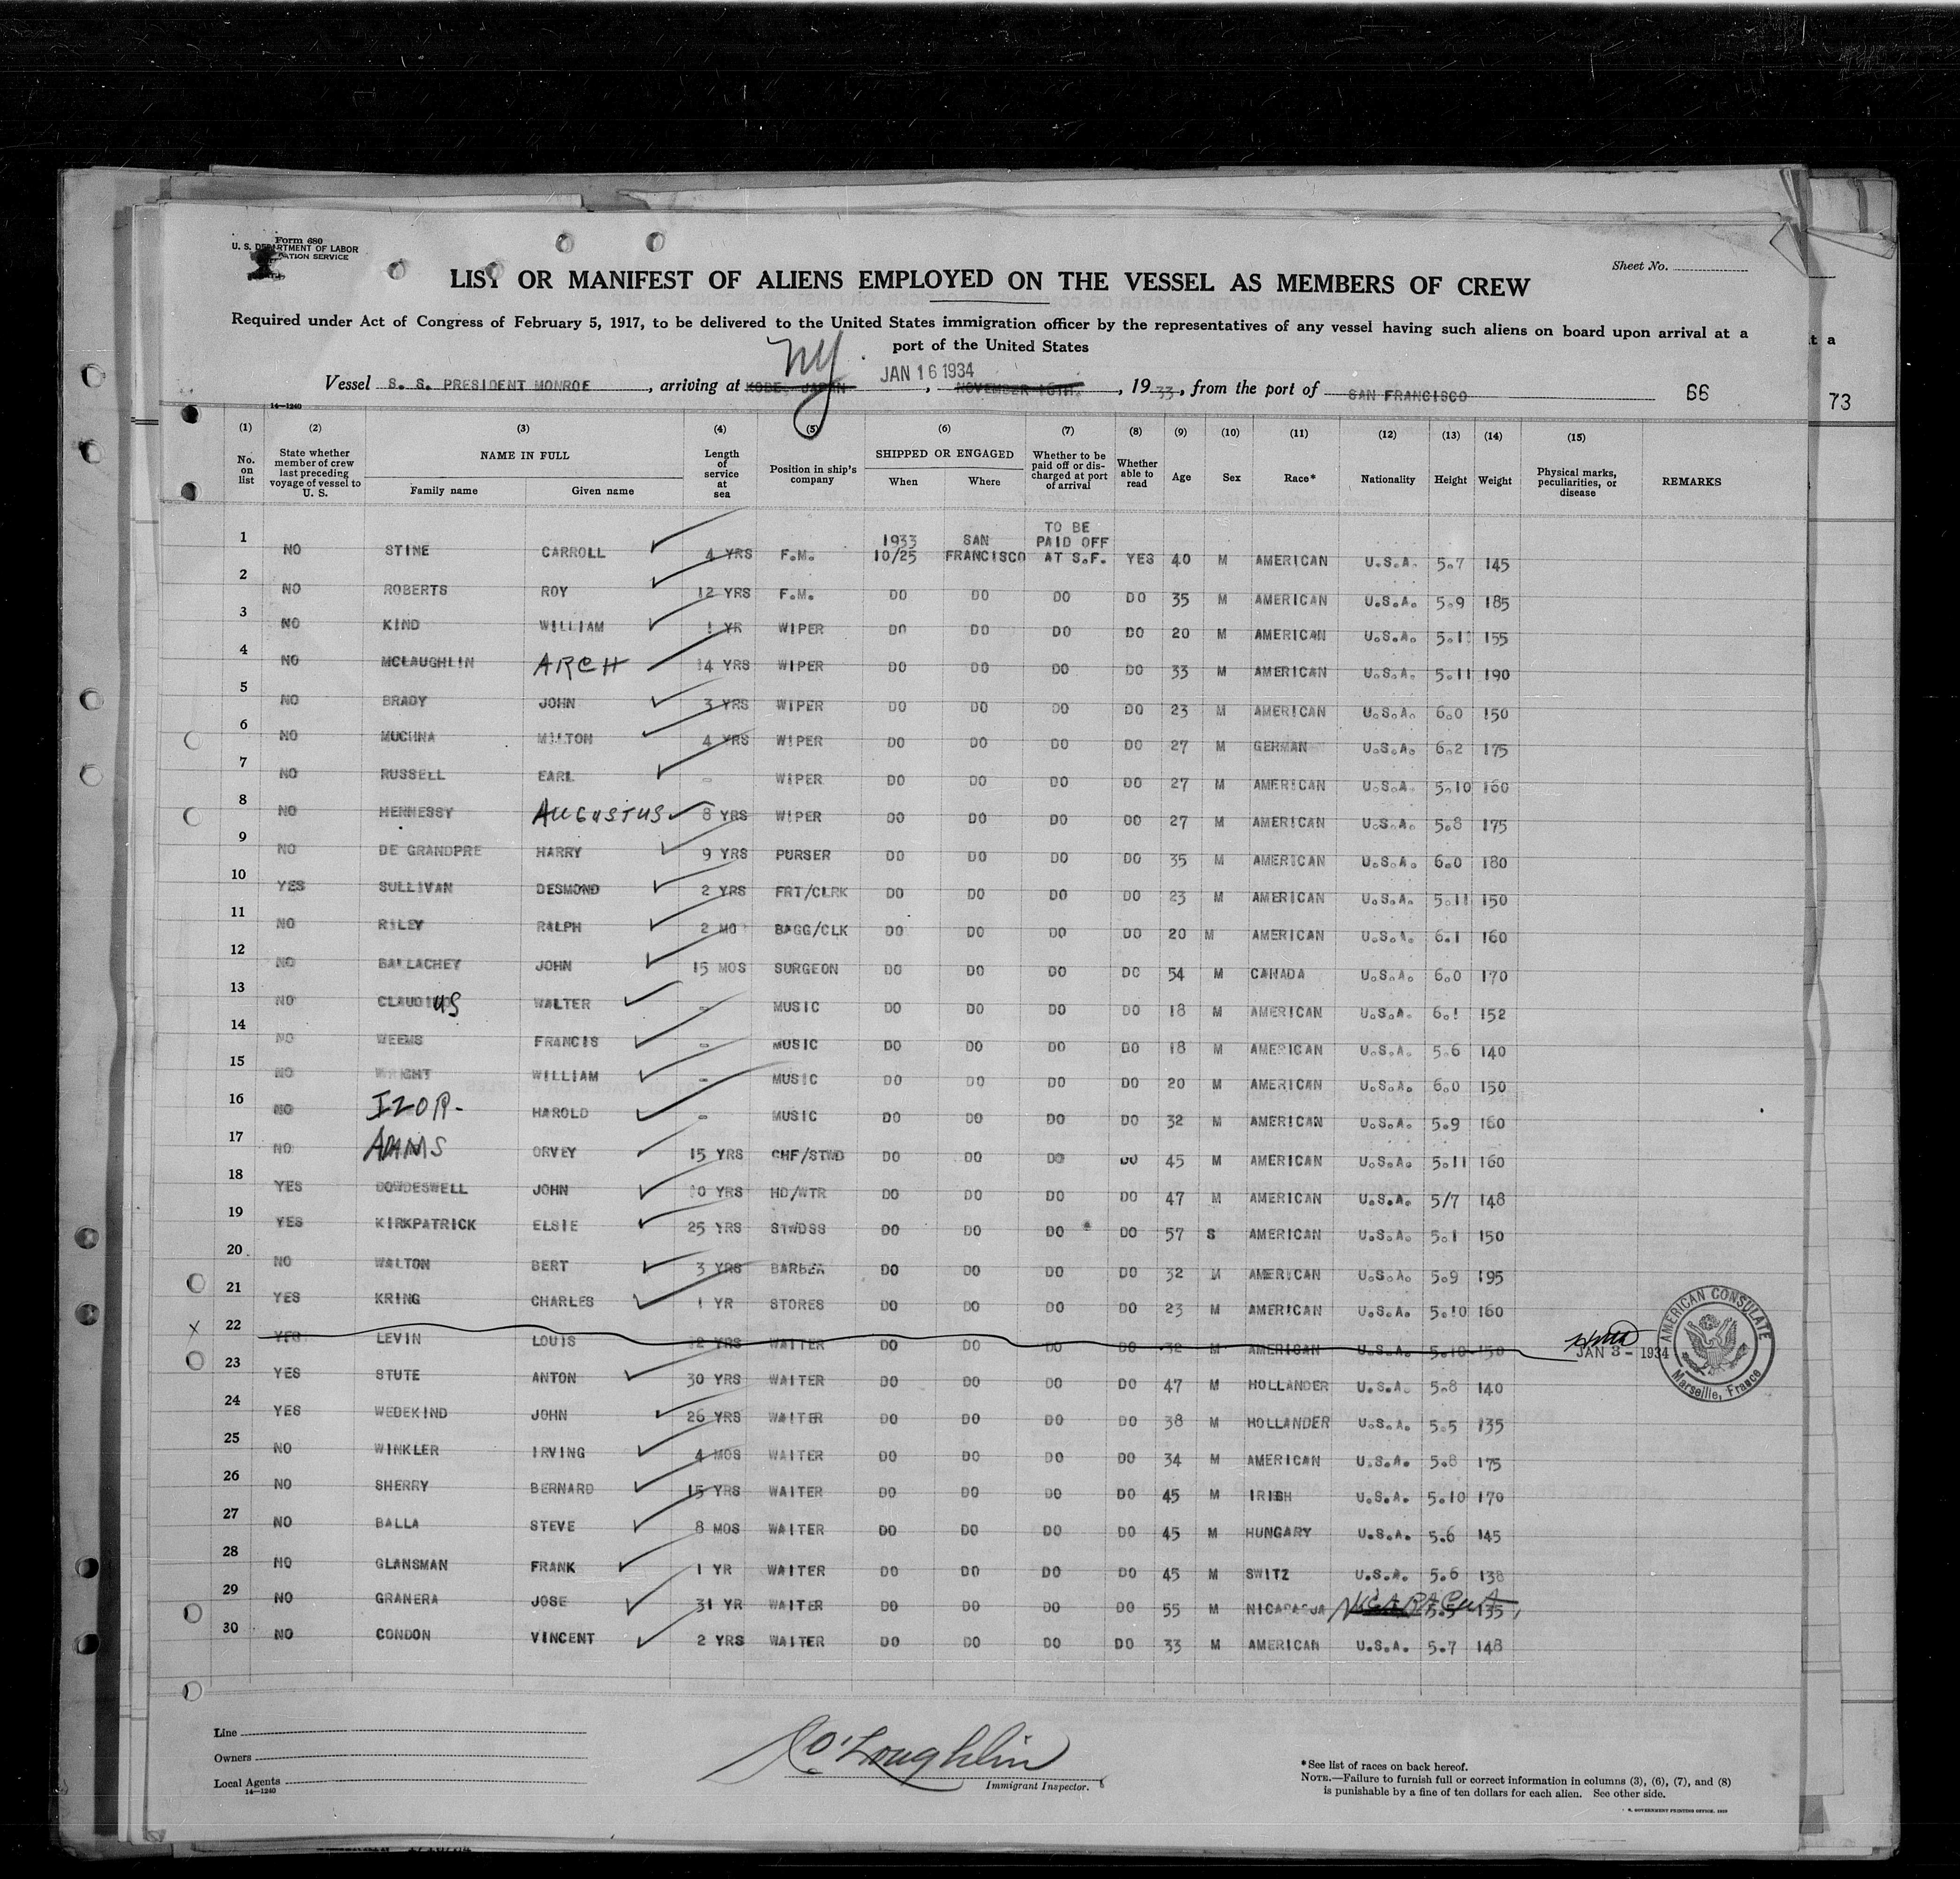 Form 680
U. S. DEPARTMENT OF LABOR
SERVICE
Sheet No.
LIST OR MANIFEST OF ALIENS EMPLOYED ON THE VESSEL AS MEMBERS OF CREW
Required under Act of Congress of February 5, 1917, to be delivered to the United States immigration officer by the representatives of any vessel having such aliens on board upon arrival at a
port of the United States
t a
NY.
JAN 16 1934
Vessel S. S. PRESIDENT MONROE, arriving at KOBE, JAPAN, NOVEMBER, 1933, from the port of SAN FRANCISCO 66
73
14—1240
(1) (2) (3) (4) (5) (6) (7) (8) (9) (10) (11) (12) (13) (14) (15)
No. on list State whether member of crew last preceding voyage of vessel to U. S. NAME IN FULL Family name Given name Length of service at sea Position in ship's company SHIPPED OR ENGAGED When Where Whether to be paid off or discharged at port of arrival Whether able to read Age Sex Race* Nationality Height Weight Physical marks, peculiarities, or disease REMARKS
1 NO STINE CARROLL 4 YRS F.M. 1933 10/25 SAN FRANCISCO TO BE PAID OFF AT S.F. YES 40 M AMERICAN U.S.A. 5.7 145
2 NO ROBERTS ROY 12 YRS F.M. DO DO DO DO 35 M AMERICAN U.S.A. 5.9 185
3 NO KIND WILLIAM 1 YR WIPER DO DO DO DO 20 M AMERICAN U.S.A. 5.11 155
4 NO MCLAUGHLIN ARCH 14 YRS WIPER DO DO DO DO 33 M AMERICAN U.S.A. 5.11 190
5 NO BRADY JOHN 3 YRS WIPER DO DO DO DO 23 M AMERICAN U.S.A. 6.0 150
6 NO MUCHNA MILTON 4 YRS WIPER DO DO DO DO 27 M GERMAN U.S.A. 6.2 175
7 NO RUSSELL EARL - WIPER DO DO DO DO 27 M AMERICAN U.S.A. 5.10 160
8 NO HENNESSY AUGUSTUS 8 YRS WIPER DO DO DO DO 27 M AMERICAN U.S.A. 5.8 175
9 NO DE GRANDPRE HARRY 9 YRS PURSER DO DO DO DO 35 M AMERICAN U.S.A. 6.0 180
10 YES SULLIVAN DESMOND 2 YRS FRT/CLRK DO DO DO DO 23 M AMERICAN U.S.A. 5.11 150
11 NO RILEY RALPH 2 MO BAGG/CLK DO DO DO DO 20 M AMERICAN U.S.A. 6.1 160
12 NO BALLACHEY JOHN 15 MOS SURGEON DO DO DO DO 54 M CANADA U.S.A. 6.0 170
13 NO CLAUDIUS WALTER - MUSIC DO DO DO DO 18 M AMERICAN U.S.A. 6.1 152
14 NO WEEMS FRANCIS - MUSIC DO DO DO DO 18 M AMERICAN U.S.A. 5.6 140
15 NO WRIGHT WILLIAM - MUSIC DO DO DO DO 20 M AMERICAN U.S.A. 6.0 150
16 NO IZOR- HAROLD - MUSIC DO DO DO DO 32 M AMERICAN U.S.A. 5.9 160
17 NO ADAMS ORVEY 15 YRS CHF/STWD DO DO DO DO 45 M AMERICAN U.S.A. 5.11 160
18 YES DOWDESWELL JOHN 10 YRS HD/WTR DO DO DO DO 47 M AMERICAN U.S.A. 5/7 148
19 YES KIRKPATRICK ELSIE 25 YRS STWDSS DO DO DO DO 57 S AMERICAN U.S.A. 5.1 150
20 NO WALTON BERT 3 YRS BARBER DO DO DO DO 32 M AMERICAN U.S.A. 5.9 195
21 YES KRING CHARLES 1 YR STORES DO DO DO DO 23 M AMERICAN U.S.A. 5.10 160
X 22 YES LEVIN LOUIS 12 YRS WAITER DO DO DO DO 32 M AMERICAN U.S.A. 5.10 150 JAN 3 - 1934
AMERICAN CONSULATE Marseille, France
23 YES STUTE ANTON 30 YRS WAITER DO DO DO DO 47 M HOLLANDER U.S.A. 5.8 140
24 YES WEDEKIND JOHN 26 YRS WAITER DO DO DO DO 38 M HOLLANDER U.S.A. 5.5 135
25 NO WINKLER IRVING 4 MOS WAITER DO DO DO DO 34 M AMERICAN U.S.A. 5.8 175
26 NO SHERRY BERNARD 15 YRS WAITER DO DO DO DO 45 M IRISH U.S.A. 5.10 170
27 NO BALLA STEVE 8 MOS WAITER DO DO DO DO 45 M HUNGARY U.S.A. 5.6 145
28 NO GLANSMAN FRANK 1 YR WAITER DO DO DO DO 45 M SWITZ U.S.A. 5.6 138
29 NO GRANERA JOSE 31 YR WAITER DO DO DO DO 55 M NICARAGUA NICARAGUA 5.5 135
30 NO CONDON VINCENT 2 YRS WAITER DO DO DO DO 33 M AMERICAN U.S.A. 5.7 148
Line
Owners
Local Agents
14—1240
O'Loughlin
Immigrant Inspector.
*See list of races on back hereof.
NOTE.—Failure to furnish full or correct information in columns (3), (6), (7), and (8)
is punishable by a fine of ten dollars for each alien. See other side.
GOVERNMENT PRINTING OFFICE